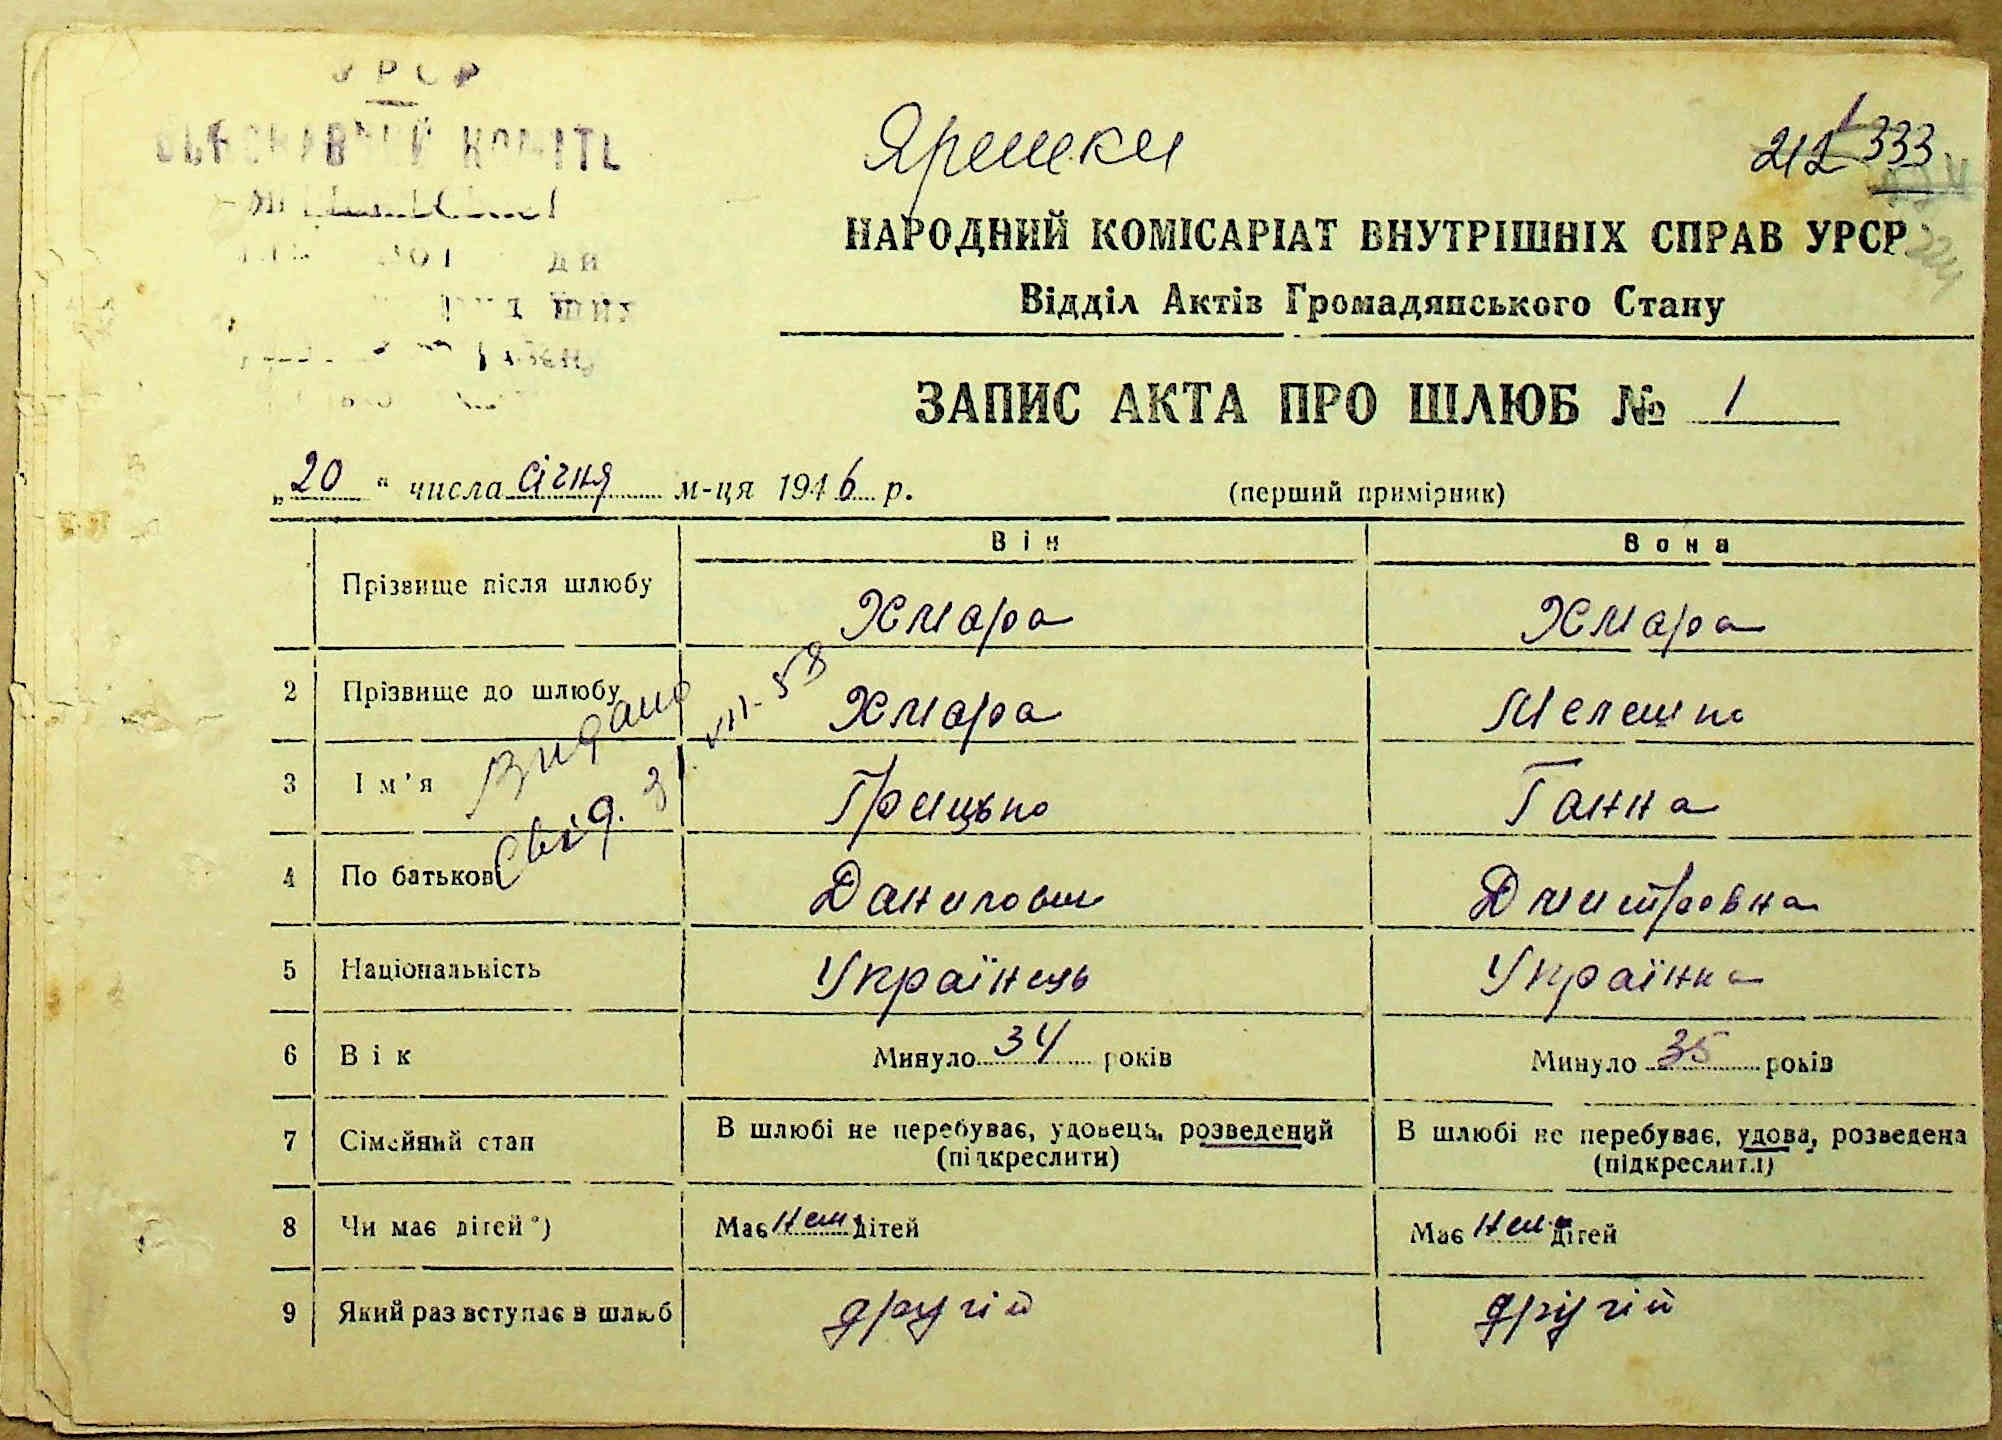 УРСР
Ярешки
212 333
НАРОДНИЙ КОМІСАРІАТ ВНУТРІШНІХ СПРАВ УРСР
Відділ Актів Громадянського Стану
ЗАПИС АКТА ПРО ШЛЮБ № 1
„20“ числа січня м-ця 1946 р. (перший примірник)
Він Вона
Прізвище після шлюбу Хмара Хмара
2 Прізвище до шлюбу Хмара Мелешко
3 Ім'я Грицько Ганна
Видано
свід. 31.VII-58
4 По батькові Данилович Дмитровна
5 Національність Українець Українка
6 Вік Минуло 34 років Минуло 35 років
7 Сімейний стан В шлюбі не перебуває, удовець, розведений В шлюбі не перебуває, удова, розведена
(підкреслити) (підкреслити)
8 Чи має дітей*) Має нема дітей Має нема дітей
9 Який раз вступає в шлюб другий другий